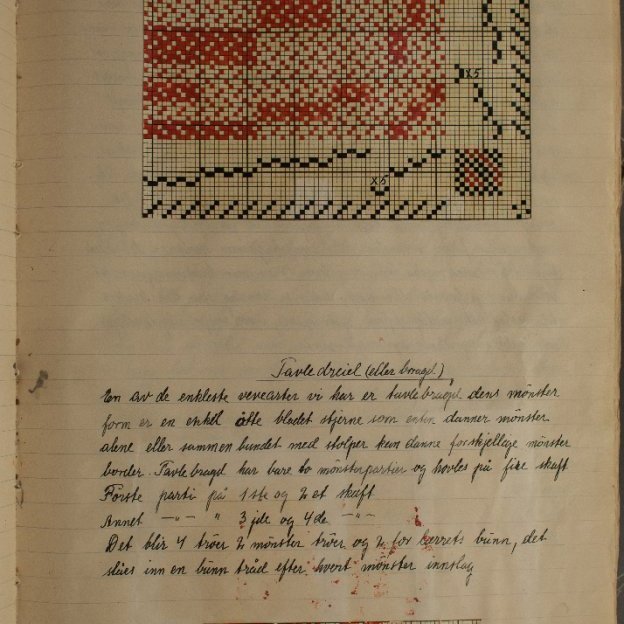 x5
x5
Tavledreiel (eller bragd.)
En av de enkleste vevearter vi har er tavlebragd, dens mönster
form er en enkel åtte bladet stjerne som enten danner mönster
alene eller sammen bundet med stolper kan danne forskjellige mönster
border. Tavlebragd har bare to mönsterpartier og hovles på fire skaft
Förste parti på 1ste og 2et skaft
Annet -"- " 3jde og 4de -"-
Det blir 4 tröer 2 mönster tröer og 2 for lerrets bunn, det
slåes inn en bunn tråd efter hvert mönster innslag